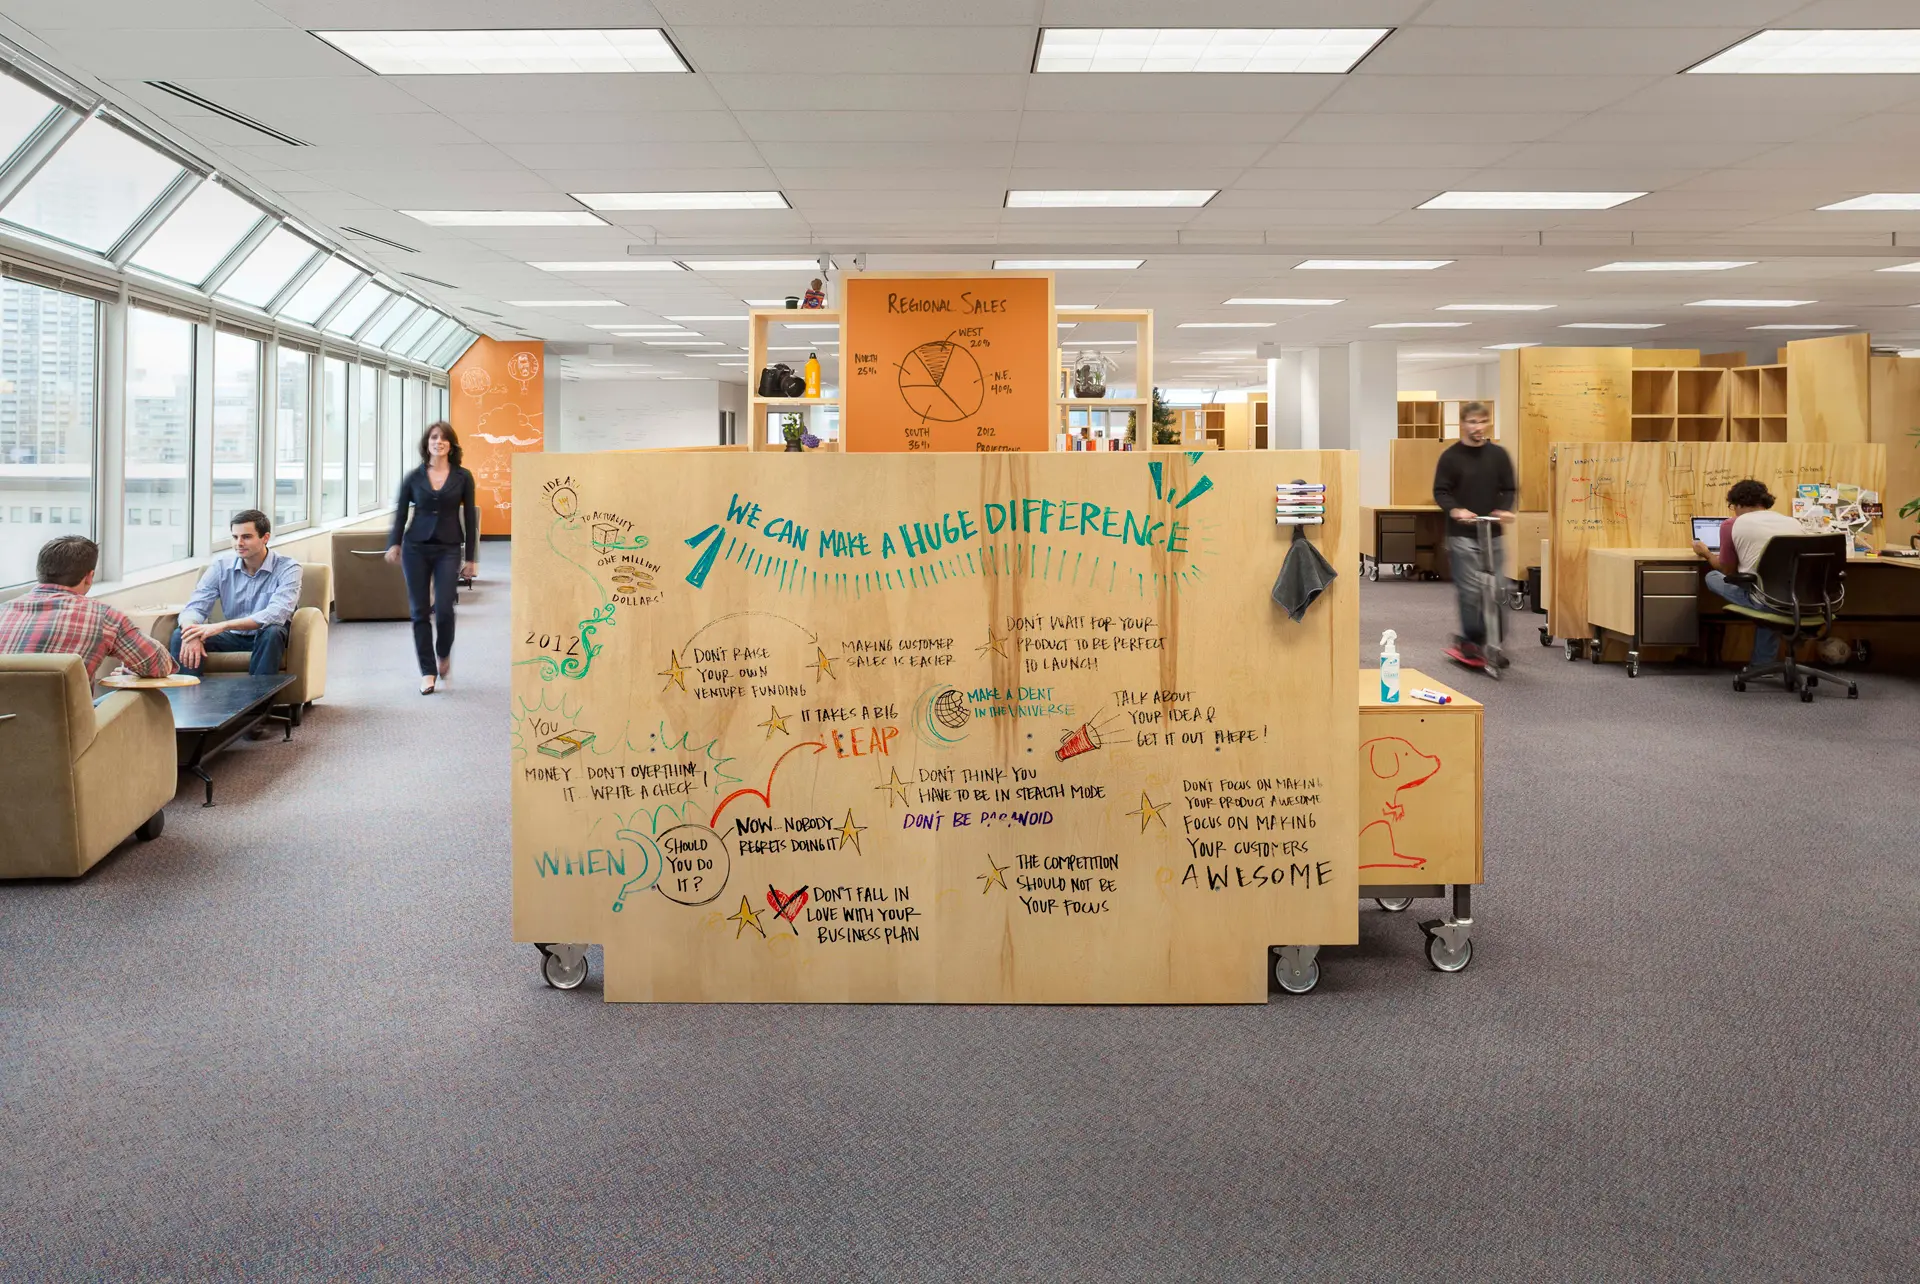 REGIONAL SALES
WEST
20%
NORTH
25%
N.E.
40%
SOUTH
35%
2012
PROJECTIONS
IDEA
TO ACTUALITY
ONE MILLION
DOLLARS!
2012
WE CAN MAKE A HUGE DIFFERENCE
DON'T RAISE
YOUR OWN
VENTURE FUNDING
MAKING CUSTOMER
SALES IS EASIER
DON'T WAIT FOR YOUR
PRODUCT TO BE PERFECT
TO LAUNCH
YOU
MONEY DON'T OVERTHINK
IT WRITE A CHECK!
IT TAKES A BIG
LEAP
MAKE A DENT
IN THE UNIVERSE
TALK ABOUT
YOUR IDEA &
GET IT OUT THERE!
WHEN
SHOULD
YOU DO
IT?
NOW... NOBODY
REGRETS DOING IT
DON'T THINK YOU
HAVE TO BE IN STEALTH MODE
DON'T BE PARANOID
DON'T FOCUS ON MAKING
YOUR PRODUCT AWESOME
FOCUS ON MAKING
YOUR CUSTOMERS
AWESOME
DON'T FALL IN
LOVE WITH YOUR
BUSINESS PLAN
THE COMPETITION
SHOULD NOT BE
YOUR FOCUS